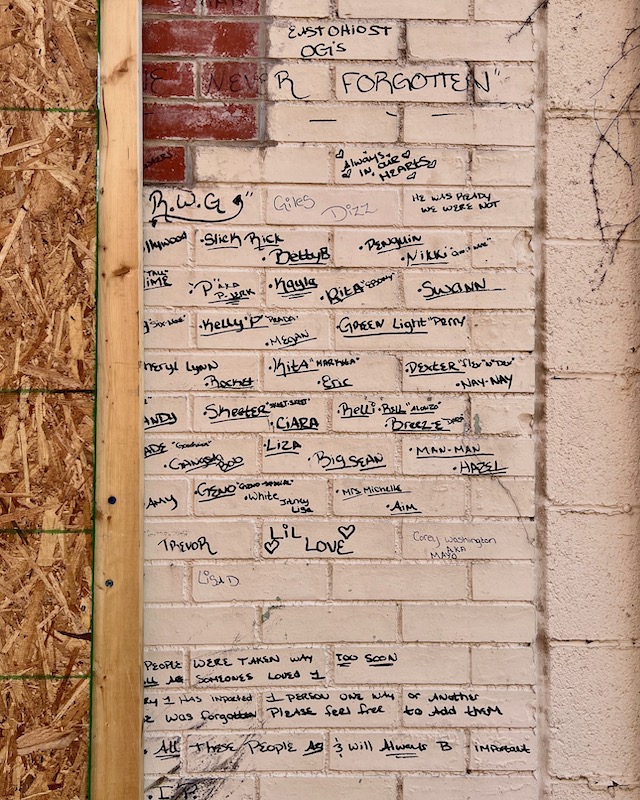 EAST OHIO ST
OG'S
NEVER FORGOTTEN"
Always
IN OUR
HEARTS
R.W.G"
Giles Dizz
HE WAS READY
WE WERE NOT
llywood
•Slick Rick
•Betty B
•Penguin
•Nikki
TALL"
IME
•"P" AKA
P-
•Kayla
•Rita
•SWANN
•Kelly "P" "PRADA"
•MEGAN
GREEN Light "Perry
heryl Lynn
•Rocket
•Kita
•Eric
•DEXTER
•NAY-NAY
ANDY
•Skeeter
•CIARA
•Relli•Rell "ALONZO"
Breez-E
ADE
•Gangsta Boo
•LIZA
•Big Sean
•MAN-MAN
•HAZEL
AMY
•GENO
•White
Lisa
•Mrs Michelle
•Aim
TREVOR
LiL
LOVE
Corey Washington
AKA
MAYO
Lisa D
PEOPLE WERE TAKEN WAY TOO SOON
LL AS SOMEONES LOVED 1
RY 1 HAS IMPACTED 1 PERSON ONE WAY OR ANOTHER
E WAS forgotten PLEASE feel free to ADD them
•All These People AS & Will Always B important